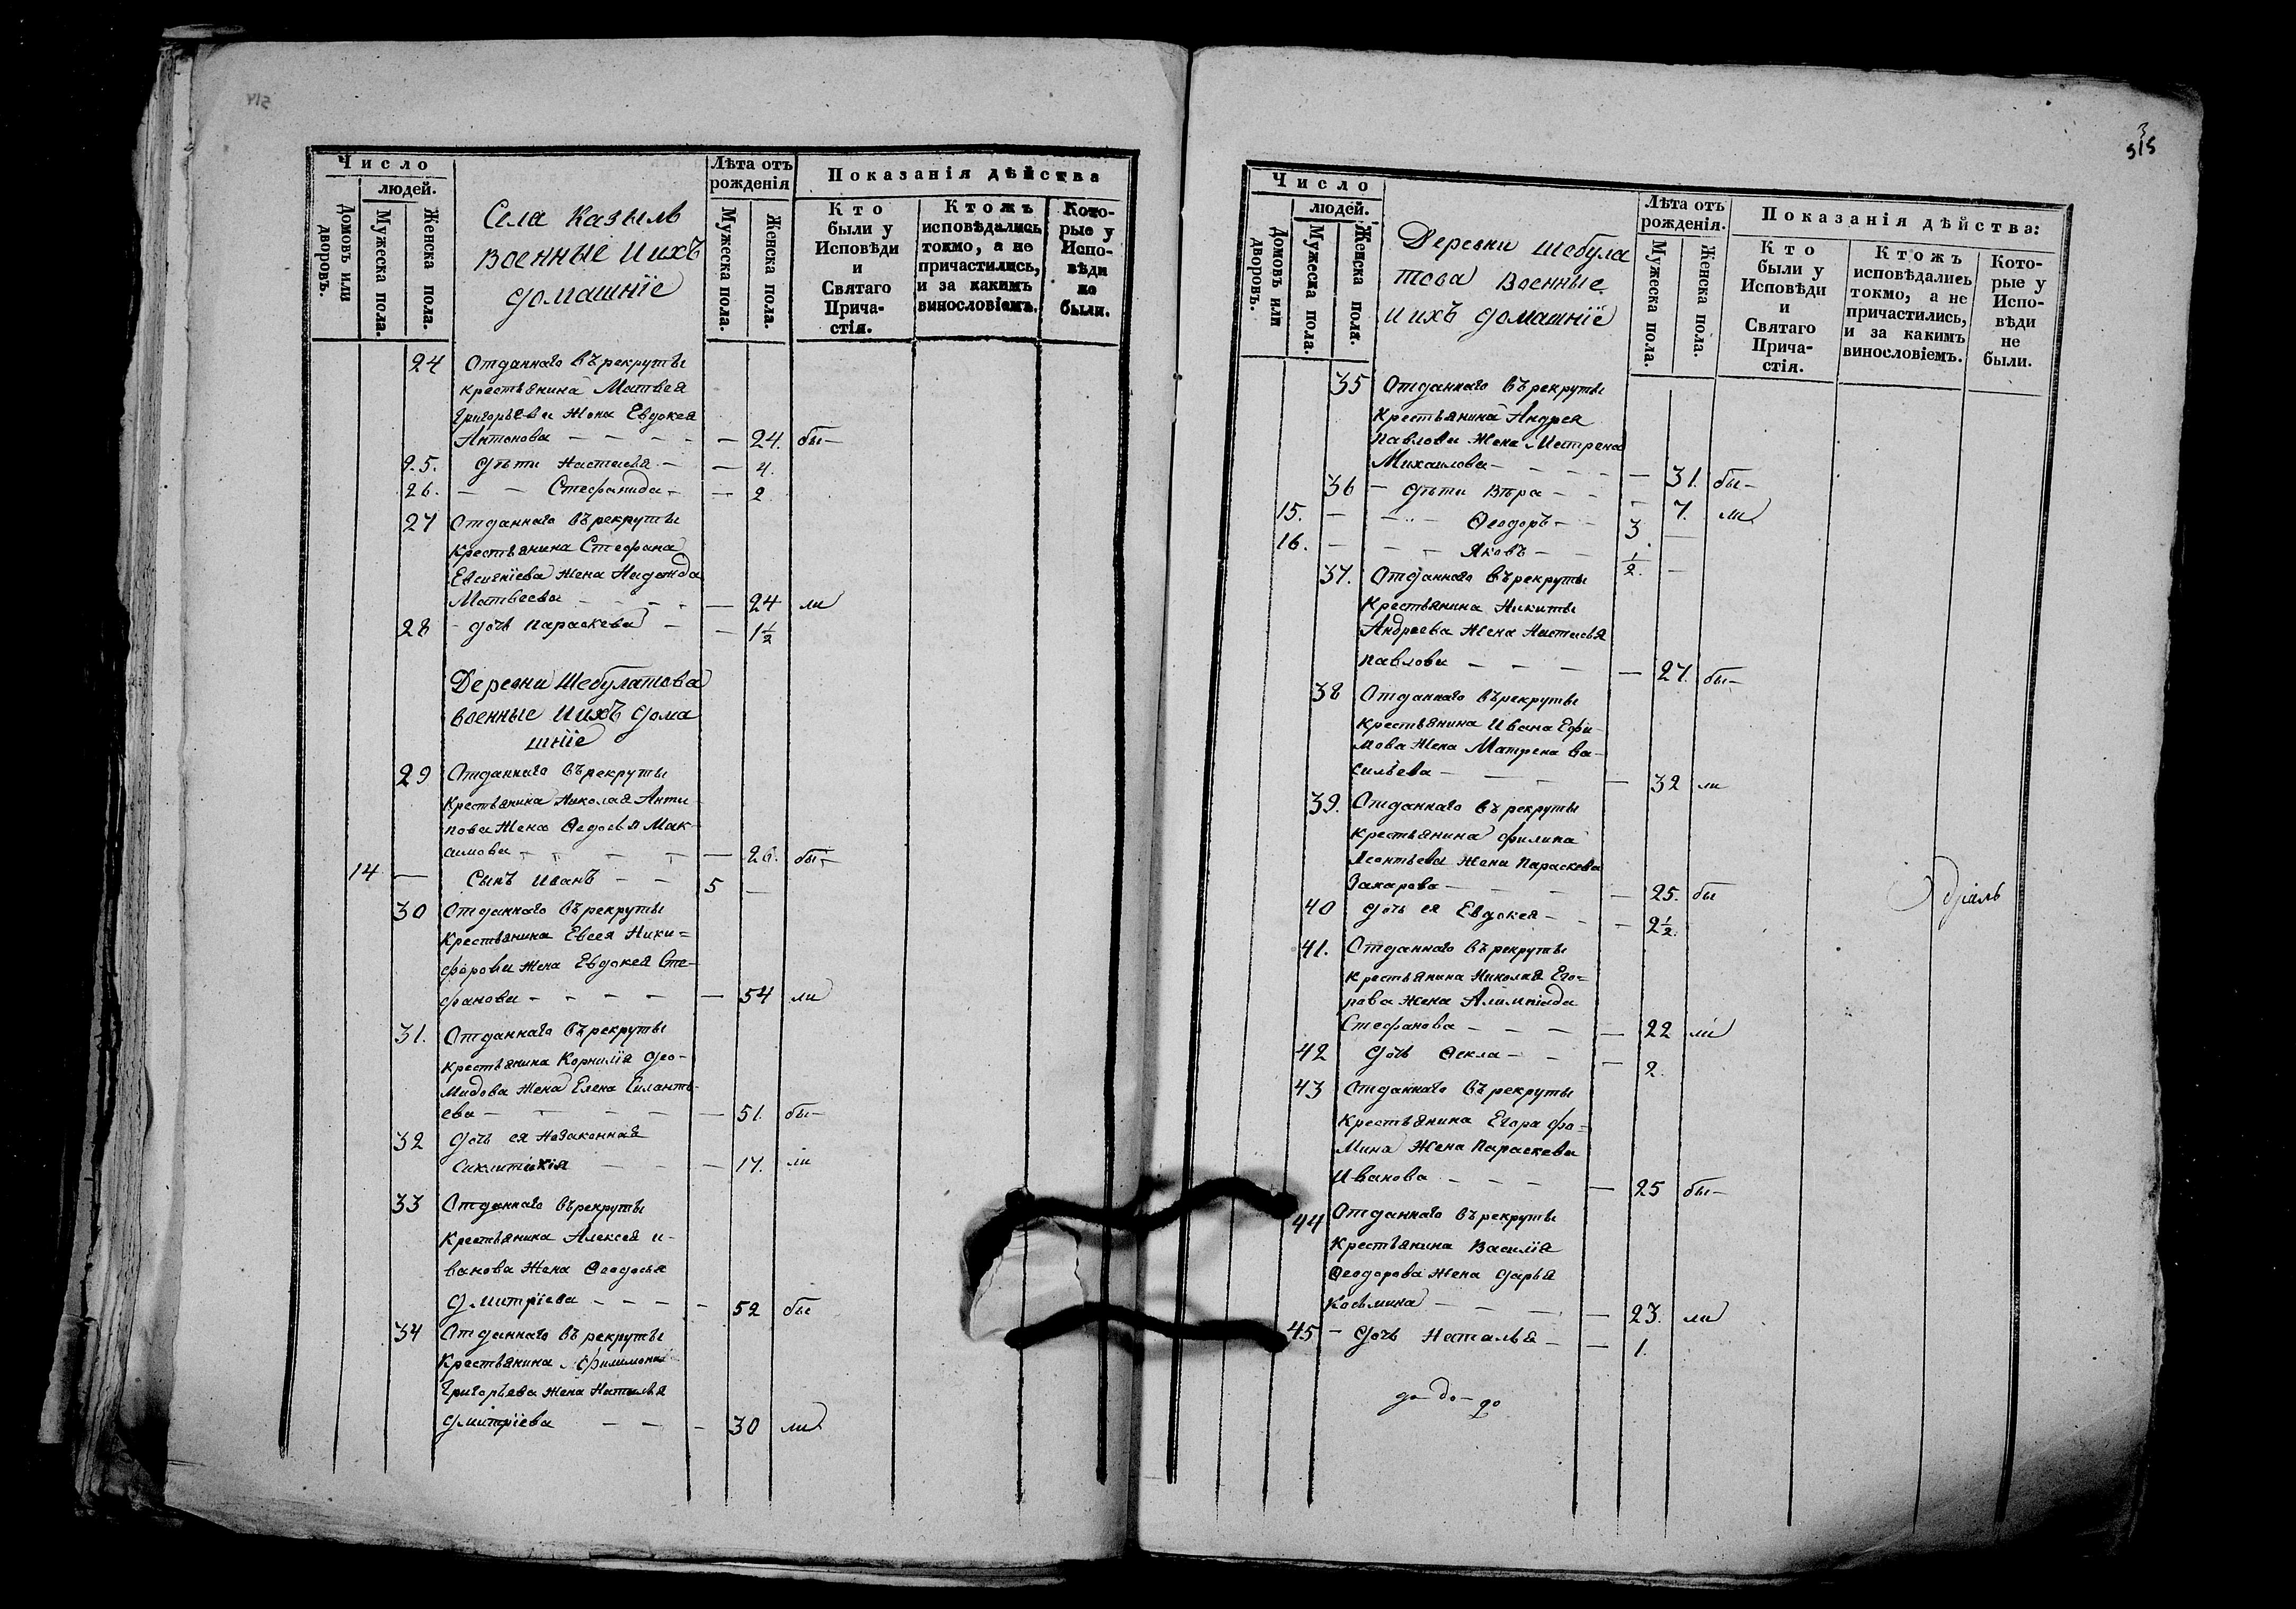 Число
людей.
Домовъ или дворовъ.
Мужеска пола.
Женска пола.
Села Казыль
военные ихъ
домашніе
Лѣта отъ
рожденія
Мужеска пола.
Женска пола.
Показанія дѣйства
Кто
были у
Исповѣди
и
Святаго
Прича-
стія.
Ктожъ
исповѣдались
токмо, а не
причастились,
и за какимъ
винословіемъ.
Кото-
рые у
Испо-
вѣди
не
были.
24 Отданнаго въ рекруты
крестьянина Матвея
Григорьева жена Евдокея
Антонова — — — — — 24. бы—
25. дѣти Настасья — — 4.
26. — — Стефанида — — 2
27 Отданнаго въ рекруты
крестьянина Стефана
Евсигніева жена Надежда
Матвеева — — — — — 24 ли
28 — дочь Параскева — — 1½
Деревни Шебулатова
военные ихъ дома
шніе
29 Отданнаго въ рекруты
крестьянина Николая Анти
пова жена Федосья Мак-
симова — — — — — 26. бы—
14 — Сынъ Иванъ — — 5 —
30 Отданнаго въ рекруты
крестьянина Евсея Ники=
форова жена Евдокея Сте-
фанова — — — — — 54 ли
31. Отданнаго въ рекруты
крестьянина Корнилія Део-
мидова жена Елена Силанть-
ева — — — — — 51. бы—
32 дочь ея незаконная
Сиклитикія — — — 17. ли
33 Отданнаго въ рекруты
крестьянина Алексея И-
ванова жена Феодосья
Дмитріева — — — — 52 бы
34 Отданнаго въ рекруты
крестьянина Филимона
Григорьева жена Наталья
Дмитріева — — — 30 ли
515
Число
людей.
Домовъ или дворовъ.
Мужеска пола.
Женска пола.
Деревни Шебула
това военные
ихъ домашніе
Лѣта отъ
рожденія.
Мужеска пола.
Женска пола.
Показанія дѣйства:
Кто
были у
Исповѣди
и
Святаго
Прича-
стія.
Ктожъ
исповѣдались
токмо, а не
причастились,
и за какимъ
винословіемъ.
Кото-
рые у
Испо-
вѣди
не
были.
35 Отданнаго въ рекруты
крестьянина Андрея
Павлова жена Матрена
Михаилова — — — — — 31. бы—
36 — дѣти Вѣра — — — 7. ли
15. — — — Феодоръ — — 3 —
16. — — — Яковъ — — ½. —
37. Отданнаго въ рекруты
крестьянина Никиты
Андреева жена Настасья
Павлова — — — — 27. бы—
38 Отданнаго въ рекруты
крестьянина Ивана Ефи-
мова жена Матрена Ва-
сильева — — — — 32 ли
39. Отданнаго въ рекруты
крестьянина Филипа
Леонтьева жена Параскева
Захарова — — — — 25. бы
40 дочь ея Евдокея — — — 2½.
41. Отданнаго въ рекруты
крестьянина Николая Его=
рова жена Алимпіада
Стефанова — — — — 22 ли
42 дочь Фекла — — — 2.
43 Отданнаго въ рекруты
крестьянина Егора Фо=
мина жена Параскева
Иванова — — — — 25 бы—
44 Отданнаго въ рекруты
крестьянина Василія
Феодорова жена Дарья
Косьмина — — — — 23. ли
45 — дочь Наталья — — 1.